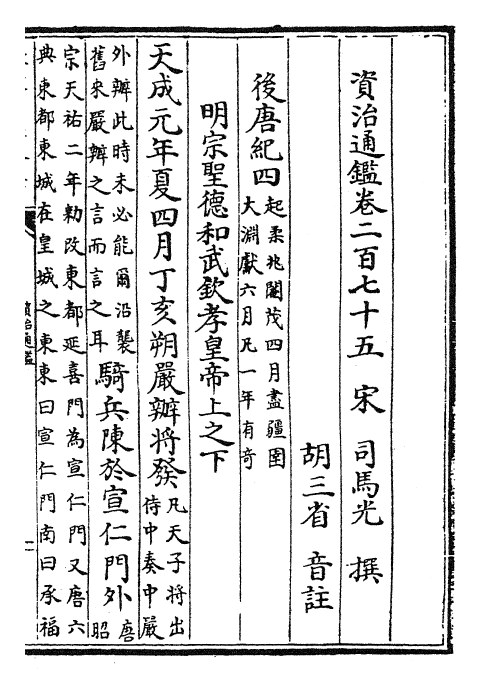 資治通鑑卷二百七十五 宋 司馬光 撰
胡三省 音註
後唐紀四 起柔兆閹茂四月盡彊圉
大淵獻六月凡一年有奇
明宗聖德和武欽孝皇帝上之下
天成元年夏四月丁亥朔嚴辦將發 凡天子將出
侍中奏中嚴
外辦此時未必能爾沿襲
舊來嚴辦之言而言之耳 騎兵陳於宣仁門外 唐
昭
宗天祐二年勅改東都延喜門為宣仁門又唐六
典東都東城在皇城之東東曰宣仁門南曰承福
資治通鑑